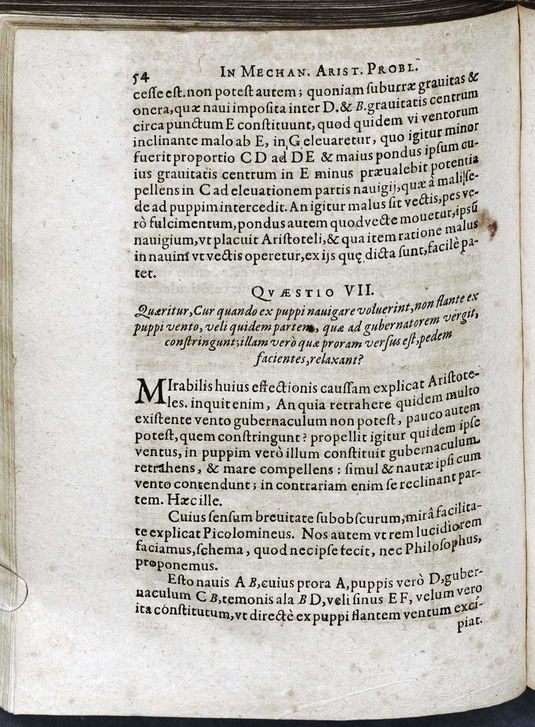 54
IN MECHAN. ARIST. PROBL.
ceſſe eſt. non poteſt autem; quoniam ſuburræ grauitas &
onera, quæ naui impoſita inter D. & B. grauitatis centrum
circa punctum E conſtituunt, quod quidem vi ventorum
inclinante malo ab E, in G eleuaretur, quo igitur minor
fuerit proportio CD ad DE & maius pondus ipſum eu-
ius grauitatis centrum in E minus præualebit potentia
pellens in C ad eleuationem partis nauigij, quæ à mali ſe-
de ad puppim intercedit. An igitur malus ſit vectis, pes ve-
rò fulcimentum, pondus autem quod vecte mouetur, ipsũ
nauigium, vt placuit Ariſtoteli, & qua item ratione malus
in nauim vt vectis operetur, ex ijs quę dicta ſunt, facilè pa-
tet.
QVÆSTIO VII.
Quæritur, Cur quando ex puppi nauigare voluerint, non flante ex
puppi vento, veli quidem partem, quæ ad gubernatorem vergit,
conſtringunt; illam verò quæ proram verſus eſt, pedem
facientes, relaxant?
MIrabilis huius effectionis cauſſam explicat Ariſtote-
les. inquit enim, An quia retrahere quidem multo
exiſtente vento gubernaculum non poteſt, pauco autem
poteſt, quem conſtringunt? propellit igitur quidem ipſe
ventus, in puppim verò illum conſtituit gubernaculum
retrahens, & mare compellens: ſimul & nautæ ipſi cum
vento contendunt; in contrariam enim ſe reclinant par-
tem. Hæc ille.
Cuius ſenſum breuitate ſubobſcurum, mirâ facilita-
te explicat Picolomineus. Nos autem vt rem lucidiorem
faciamus, ſchema, quod nec ipſe fecit, nec Philoſophus,
proponemus.
Eſto nauis A B, cuius prora A, puppis verò D, guber-
naculum C B, temonis ala B D, veli ſinus E F, velum vero
ita cónſtitutum, vt directè ex puppi flantem ventum exci-
piat.